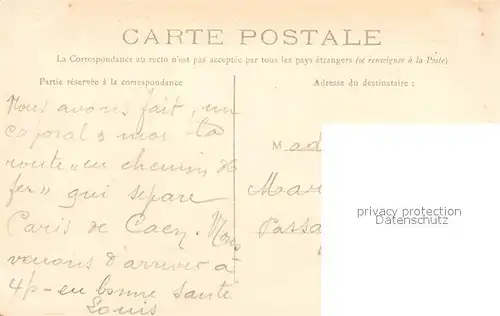 CARTE POSTALE
La Correspondance au recto n'est pas acceptée par tous les pays étrangers (se renseigner à la Poste)
Partie réservée à la correspondance
Adresse du destinataire :
Nous avons fait, un
caporal & moi la
route "en chemin de
fer" qui separe
Paris de Caen. Nous
venons d'arriver à
4h - en bonne santé
Louis
Mad
Mar
Passa
privacy protection
Datenschutz